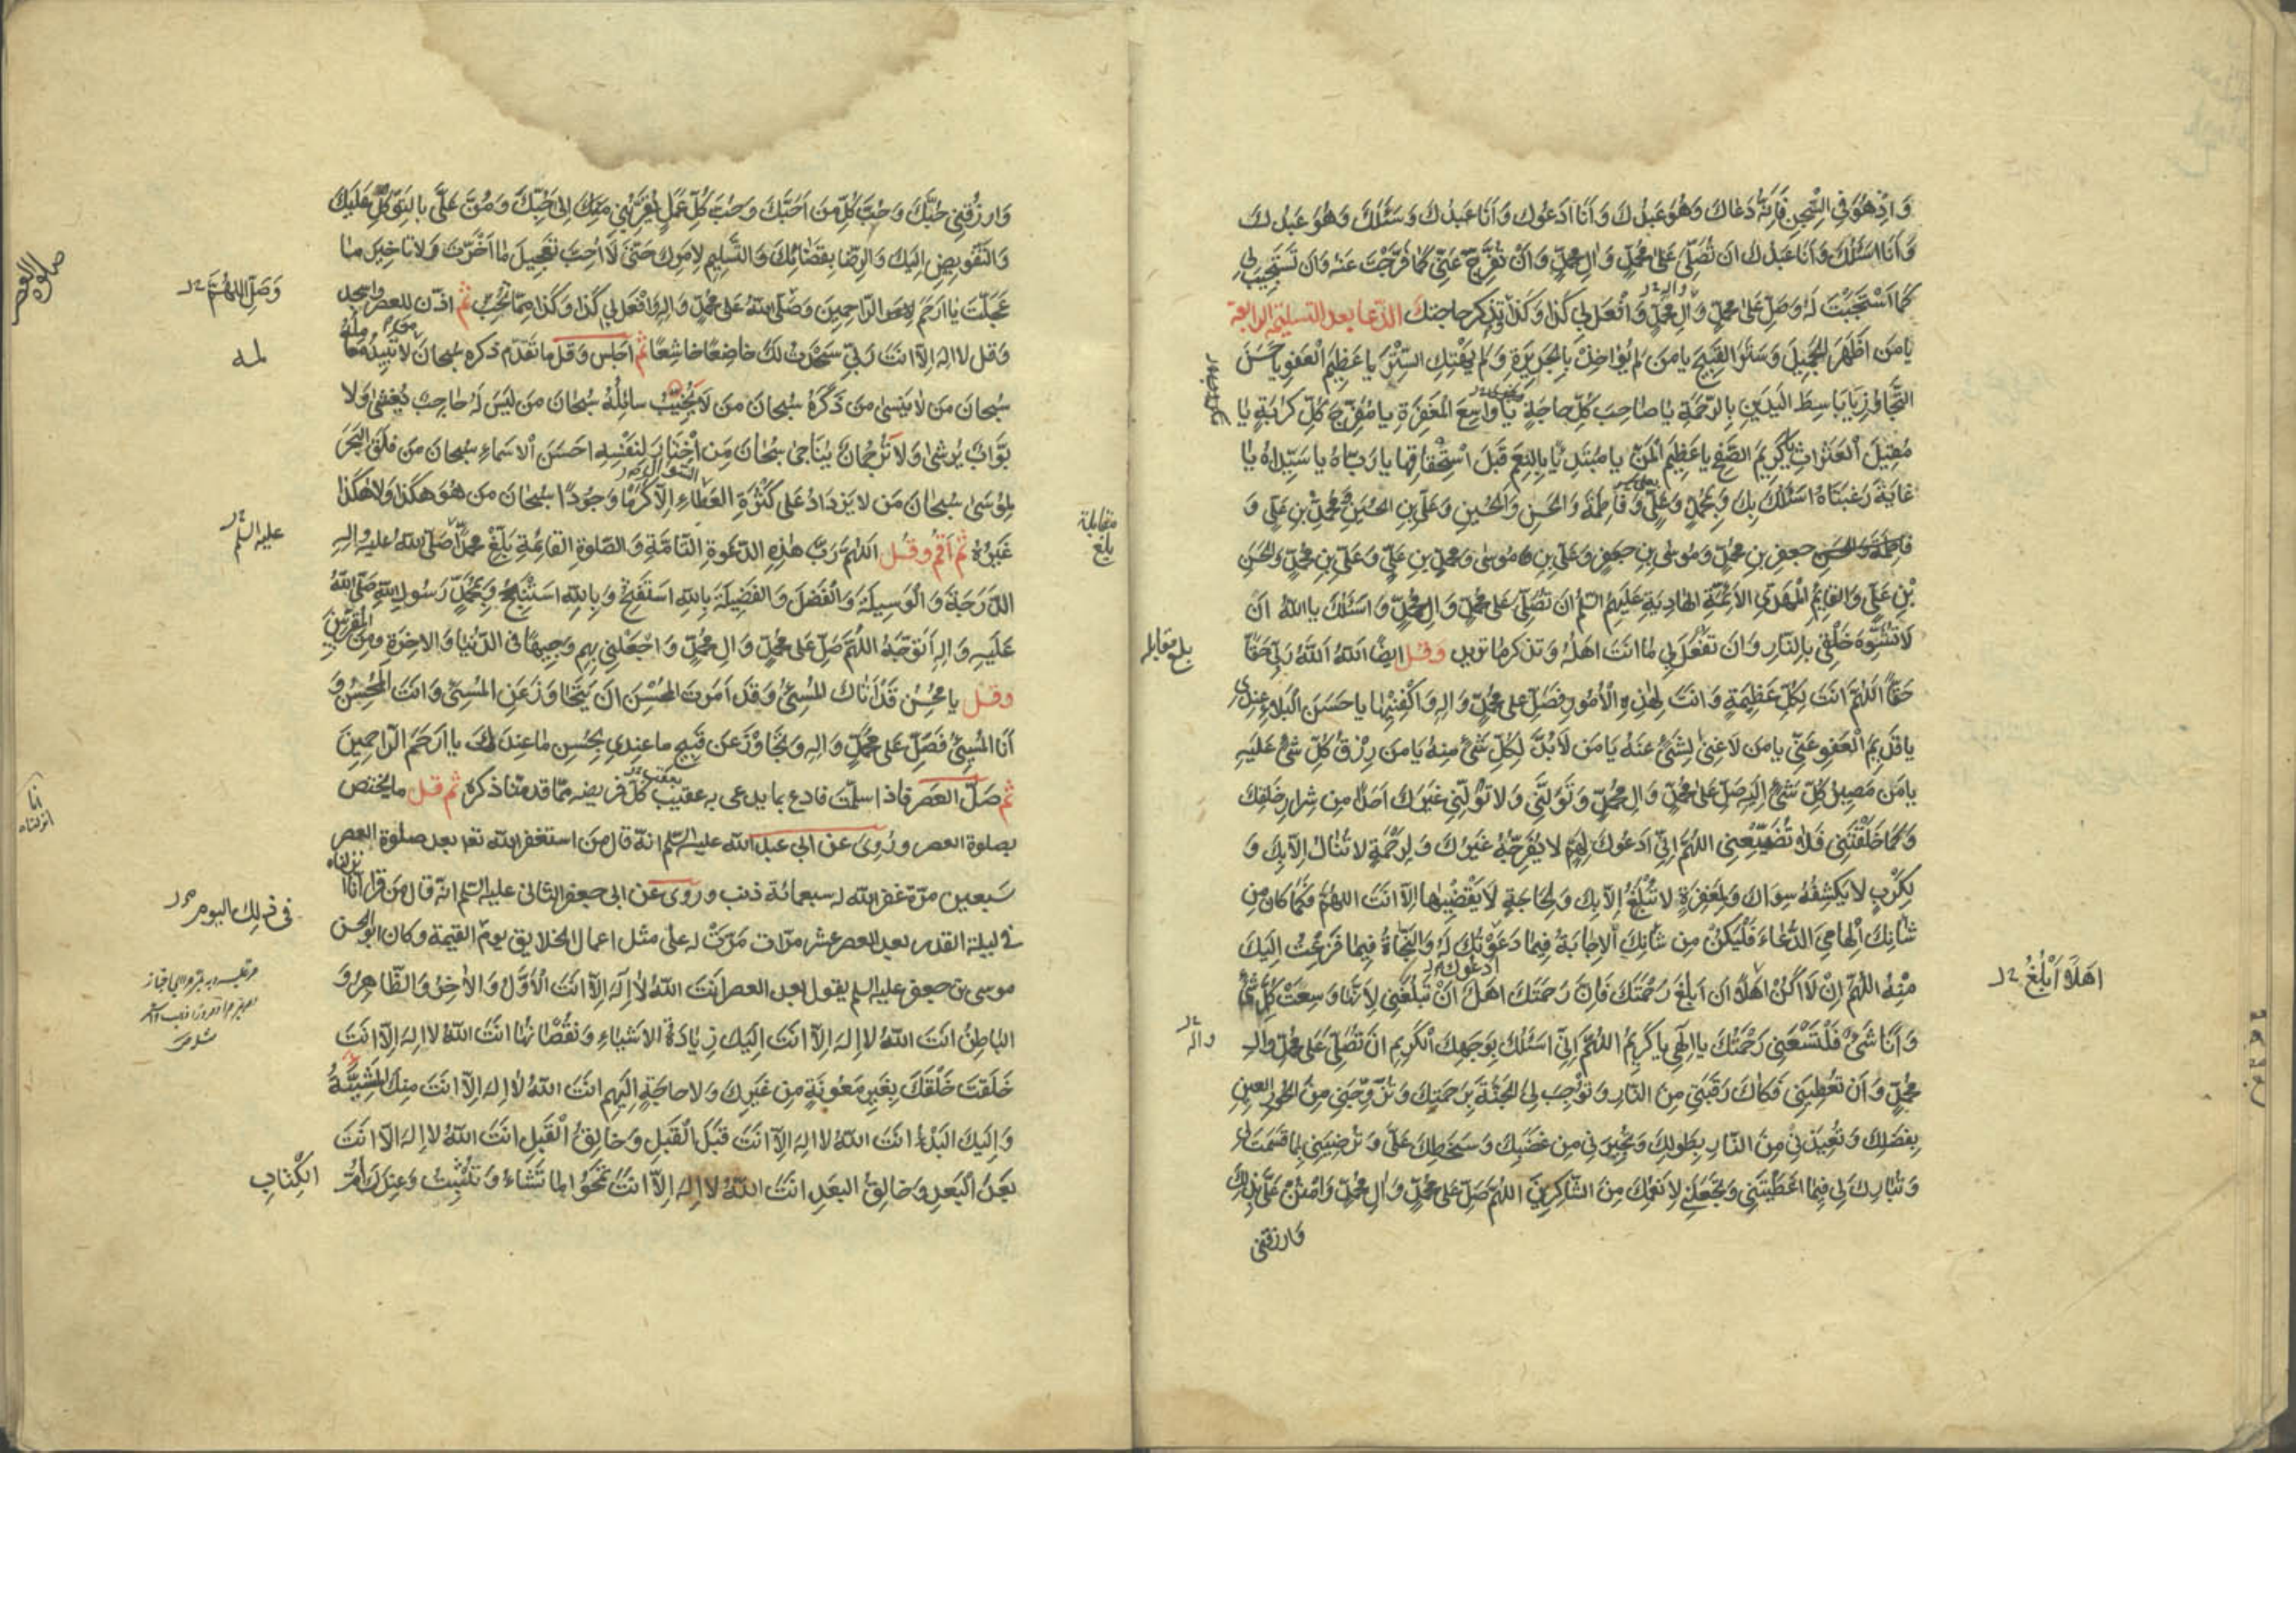 وَاِذْ هُوَ فِي السِّجْنِ فَاِنَّهُ دَعَاكَ وَهُوَ عَبْدُكَ وَاَنَا اَدْعُوكَ وَاَنَا عَبْدُكَ وَسَئَلَكَ وَهُوَ عَبْدُكَ
وَاَنَا اَسْئَلُكَ وَاَنَا عَبْدُكَ اَنْ تُصَلِّيَ عَلى مُحَمَّدٍ وَالِ مُحَمَّدٍ وَاَنْ تُفَرِّجَ عَنِّي كَمَا فَرَّجْتَ عَنْهُ وَاَنْ تَسْتَجِيبَ لِي
كَمَا اسْتَجَبْتَ لَهُ وَصَلِّ عَلى مُحَمَّدٍ وَالِ مُحَمَّدٍ وَافْعَلْ بِي كَذَا وَكَذَا وتذكر حاجتك الدّعا بعد التسليمة الرابعة
يَا مَنْ اَظْهَرَ الْجَمِيلَ وَسَتَرَ الْقَبِيحَ يَا مَنْ لَمْ يُؤَاخِذْ بِالْجَرِيرَةِ وَلَمْ يَهْتِكِ السِّتْرَ يَا عَظِيمَ الْعَفْوِ يَا حَسَنَ
التَّجَاوُزِ يَا بَاسِطَ الْيَدَيْنِ بِالرَّحْمَةِ يَا صَاحِبَ كُلِّ حَاجَةٍ يَا وَاسِعَ الْمَغْفِرَةِ يَا مُفَرِّجَ كُلِّ كُرْبَةٍ يَا
مُقِيلَ الْعَثَرَاتِ يَا كَرِيمَ الصَّفْحِ يَا عَظِيمَ الْمَنِّ يَا مُبْتَدِئًا بِالنِّعَمِ قَبْلَ اسْتِحْقَاقِهَا يَا رَبَّاهُ يَا سَيِّدَاهُ يَا
غَايَةَ رَغْبَتَاهُ اَسْئَلُكَ بِكَ وَبِمُحَمَّدٍ وَعَلِيٍّ وَفَاطِمَةَ وَالْحَسَنِ وَالْحُسَيْنِ وَعَلِيِّ بْنِ الْحُسَيْنِ وَمُحَمَّدِ بْنِ عَلِيٍّ وَ
جَعْفَرِ بْنِ مُحَمَّدٍ وَمُوسَى بْنِ جَعْفَرٍ وَعَلِيِّ بْنِ مُوسى وَمُحَمَّدِ بْنِ عَلِيٍّ وَعَلِيِّ بْنِ مُحَمَّدٍ وَالْحَسَنِ
بْنِ عَلِيٍّ وَالْقَائِمِ الْمَهْدِيِّ الْاَئِمَّةِ الْهَادِيَةِ عَلَيْهِمُ السَّلَمُ اَنْ تُصَلِّيَ عَلى مُحَمَّدٍ وَالِ مُحَمَّدٍ وَاَسْئَلُكَ يَا اللهُ اَنْ
لَا تُشَوِّهَ خَلْقِي بِالنَّارِ وَاَنْ تَفْعَلَ بِي مَا اَنْتَ اَهْلُهُ وَتذكر ما تريد وقل ايضًا اَللهُ اَللهُ رَبِّي حَقًّا
حَقًّا اَللّهُمَّ اَنْتَ لِكُلِّ عَظِيمَةٍ وَاَنْتَ لِهذِهِ الْاُمُورِ فَصَلِّ عَلى مُحَمَّدٍ وَالِهِ وَاكْفِنِيهَا يَا حَسَنَ الْبَلَاءِ عِنْدِي
يَا قَدِيمَ الْعَفْوِ عَنِّي يَا مَنْ لَا غِنى لِشَيْءٍ عَنْهُ يَا مَنْ لَا بُدَّ لِكُلِّ شَيْءٍ مِنْهُ يَا مَنْ رِزْقُ كُلِّ شَيْءٍ عَلَيْهِ
يَا مَنْ مَصِيرُ كُلِّ شَيْءٍ اِلَيْهِ صَلِّ عَلى مُحَمَّدٍ وَالِ مُحَمَّدٍ وَتَوَلَّنِي وَلَا تُوَلِّنِي غَيْرَكَ اَحَدًا مِنْ شِرَارِ خَلْقِكَ
وَكَمَا خَلَقْتَنِي فَلَا تُضَيِّعْنِي اَللّهُمَّ اِنِّي اَدْعُوكَ لِهَمٍّ لَا يُفَرِّجُهُ غَيْرُكَ وَلِرَحْمَةٍ لَا تُنَالُ اِلَّا بِكَ وَ
لِكَرْبٍ لَا يَكْشِفُهُ سِوَاكَ وَلِمَغْفِرَةٍ لَا تُبْلَغُ اِلَّا بِكَ وَلِحَاجَةٍ لَا يَقْضِيهَا اِلَّا اَنْتَ اَللّهُمَّ فَكَمَا كَانَ مِنْ
شَاْنِكَ اِلْهَامِيَ الدُّعَاءَ فَلْيَكُنْ مِنْ شَاْنِكَ الْاِجَابَةُ فِيمَا دَعَوْتُكَ لَهُ وَالنَّجَاةُ فِيمَا فَزِعْتُ اِلَيْكَ
مِنْهُ اَللّهُمَّ اِنْ لَا اَكُنْ اَهْلًا اَنْ اَبْلُغَ رَحْمَتَكَ فَاِنَّ رَحْمَتَكَ اَهْلٌ اَنْ تَبْلُغَنِي لِاَنَّهَا وَسِعَتْ كُلَّ شَيْءٍ
وَاَنَا شَيْءٌ فَلْتَسَعْنِي رَحْمَتُكَ يَا اِلهِي يَا كَرِيمُ اَللّهُمَّ اِنِّي اَسْئَلُكَ بِوَجْهِكَ الْكَرِيمِ اَنْ تُصَلِّيَ عَلى مُحَمَّدٍ وَالِ
مُحَمَّدٍ وَاَنْ تُعْطِيَنِي فَكَاكَ رَقَبَتِي مِنَ النَّارِ وَتُوجِبَ لِيَ الْجَنَّةَ بِرَحْمَتِكَ وَتُزَوِّجَنِي مِنَ الْحُورِ الْعِينِ
بِفَضْلِكَ وَتُعِيذَنِي مِنَ النَّارِ بِطَوْلِكَ وَتُجِيرَنِي مِنْ غَضَبِكَ وَسَخَطِكَ عَلَيَّ وَتُرْضِيَنِي بِمَا قَسَمْتَ لِي
وَتُبَارِكَ لِي فِيمَا اَعْطَيْتَنِي وَتَجْعَلَنِي لِاَنْعُمِكَ مِنَ الشَّاكِرِينَ اَللّهُمَّ صَلِّ عَلى مُحَمَّدٍ وَالِ مُحَمَّدٍ وَامْنُنْ عَلَيَّ بِذلِكَ
وَارزقنى
اَهْلًا اَبْلُغُ
واله
بلغ مقابله
وَارْزُقْنِي حُبَّكَ وَحُبَّ كُلِّ مَنْ اَحَبَّكَ وَحُبَّ كُلِّ عَمَلٍ يُقَرِّبُنِي مِنْكَ اِلى حُبِّكَ وَمُنَّ عَلَيَّ بِالتَّوَكُّلِ عَلَيْكَ
وَالتَّفْوِيضِ اِلَيْكَ وَالرِّضَا بِقَضَائِكَ وَالتَّسْلِيمِ لِاَمْرِكَ حَتّى لَا اُحِبَّ تَعْجِيلَ مَا اَخَّرْتَ وَلَا تَاْخِيرَ مَا
عَجَّلْتَ يَا اَرْحَمَ الرَّاحِمِينَ وَصَلَّى اللهُ عَلى مُحَمَّدٍ وَالِهِ وَافْعَلْ بِي كَذَا وَكَذَا مِمَّا تُحِبُّ ثم اذّن للعصر واسجد
وَقل لا اله اِلّا انتَ رَبّي سَجَدْتُ لَكَ خَاضِعًا خَاشِعًا ثم اجلس وقل ما تقدّم ذكره سُبحانَ مَنْ لَا تَبِيدُ مَعَالِمُهُ
سُبحانَ مَن لَا يَنْسى مَن ذَكَرَهُ سُبحانَ مَن لَا يُخَيِّبُ سائِلَهُ سُبحانَ مَن لَيْسَ لَهُ حَاجِبٌ يُغْشى وَلَا
بَوَّابٌ يُرْشى وَلَا تَرْجُمَانٌ يُنَاجى سُبْحَانَ مَنِ اخْتَارَ لِنَفْسِهِ اَحْسَنَ الْاَسْمَاءِ سُبحانَ مَن فَلَقَ الْبَحْرَ
لِمُوسَى سُبحانَ مَن لا يَزْدَادُ عَلى كَثْرَةِ الْعَطَاءِ اِلَّا كَرَمًا وَجُودًا سُبحانَ مَن هُوَ هكَذَا وَلَا هكَذَا
غَيْرُهُ ثُمَّ اَقم وقُل اَللّهُمَّ رَبَّ هذِهِ الدَّعْوَةِ التَّامَّةِ وَالصَّلوةِ الْقَائِمَةِ بَلِّغْ مُحَمَّدًا صَلَّى اللهُ عَلَيْهِ وَالِهِ
الدَّرَجَةَ وَالْوَسِيلَةَ وَالْفَضْلَ وَالْفَضِيلَةَ بِاللهِ اَسْتَفْتِحُ وَبِاللهِ اَسْتَنْجِحُ وَبِمُحَمَّدٍ رَسُولِ اللهِ صَلَّى اللهُ
عَلَيْهِ وَالِهِ اَتَوَجَّهُ اَللّهُمَّ صَلِّ عَلى مُحَمَّدٍ وَالِ مُحَمَّدٍ وَاجْعَلْنِي بِهِمْ وَجِيهًا فِي الدُّنْيَا وَالْاخِرَةِ وَمِنَ الْمُقَرَّبِينَ
وقل يَا مُحْسِنُ قَدْ اَتَاكَ الْمُسِيءُ وَقَدْ اَمَرْتَ الْمُحْسِنَ اَنْ يَتَجَاوَزَ عَنِ الْمُسِيءِ وَاَنْتَ الْمُحْسِنُ وَ
اَنَا الْمُسِيءُ فَصَلِّ عَلى مُحَمَّدٍ وَالِهِ وَتَجَاوَزْ عَنْ قَبِيحِ مَا عِنْدِي بِحُسْنِ مَا عِنْدَكَ يَا اَرْحَمَ الرَّاحِمِينَ
ثم صَلِّ العَصر فاذا سلّمت فادع بما يدعى به عقيب كلّ فريضه ممّا قدمنا ذكره ثم قل ما يختص
بصلوة العصر ورُوى عن ابى عبد الله عليه السّلم انّه قال من استغفر الله تعا بعد صلوة العصر
سَبعين مرّة غفر الله له سبعمائة ذنب وروى عن ابى جعفر الثانى عليه السّلم انّه قال من قرا انّا انزلناه
فى ليلة القدر بعد العصر عشر مرّات مَرّت له على مثل اعمال الخلايق يوم القيمة وكان ابو الحسن
موسى بن جعفر عليه السلم يقول بعد العصر اَنْتَ اللهُ لَا اِلهَ اِلَّا اَنْتَ الْاَوَّلُ وَالْاخِرُ وَالظَّاهِرُ وَ
الْبَاطِنُ اَنْتَ اللهُ لَا اِلهَ اِلَّا اَنْتَ اِلَيْكَ زِيَادَةُ الْاَشْيَاءِ وَنُقْصَانُهَا اَنْتَ اللهُ لَا اِلهَ اِلَّا اَنْتَ
خَلَقْتَ خَلْقَكَ بِغَيْرِ مَعُونَةٍ مِنْ غَيْرِكَ وَلَا حَاجَةٍ اِلَيْهِمْ اَنْتَ اللهُ لَا اِلهَ اِلَّا اَنْتَ مِنْكَ الْمَشِيَّةُ
وَاِلَيْكَ الْبَدْءُ اَنْتَ اللهُ لَا اِلهَ اِلَّا اَنْتَ قَبْلَ الْقَبْلِ وَخَالِقُ الْقَبْلِ اَنْتَ اللهُ لَا اِلهَ اِلَّا اَنْتَ
بَعْدَ الْبَعْدِ وَخَالِقُ الْبَعْدِ اَنْتَ اللهُ لَا اِلهَ اِلَّا اَنْتَ تَمْحُو مَا تَشَاءُ وَتُثْبِتُ وَعِنْدَكَ اُمُّ
الْكِتَابِ
صلوة العصر
وَصَلِّ اللّهُمَّ
عليه السلم
مقابلة
بلغ
انا
انزلناه
فى ذلك اليوم